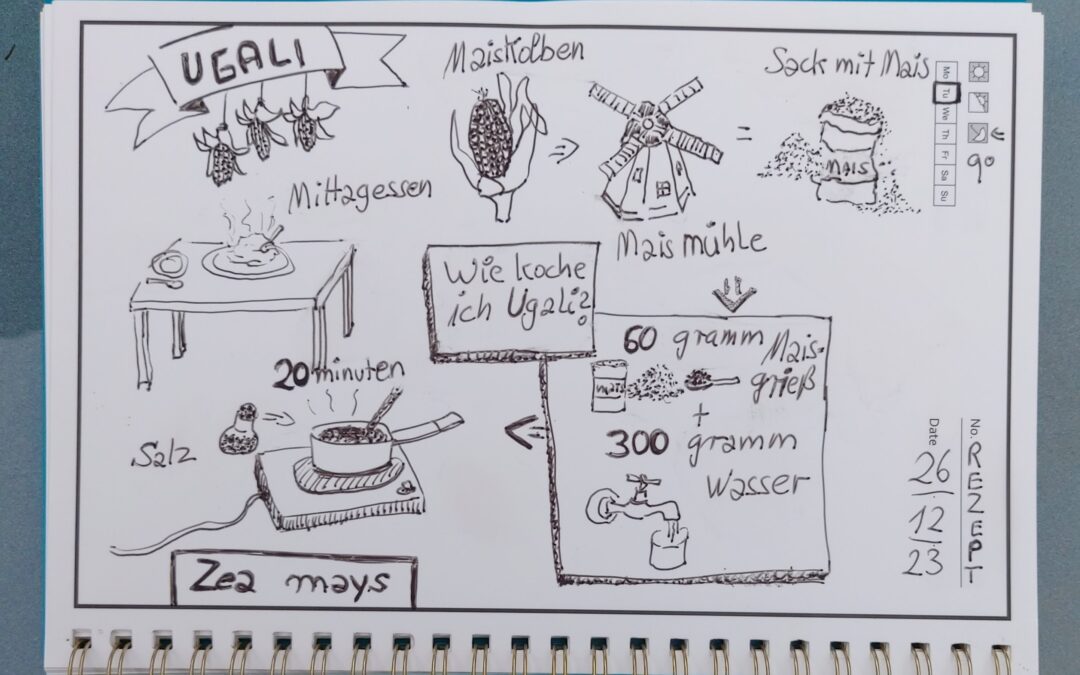 UGALI
Maiskolben
Sack mit Mais
MAIS
Mo
Tu
We
Th
Fr
Sa
Su
9°
Mittagessen
Mais mühle
Wie koche
ich Ugali?
60 gramm Mais-
grieß
mais
+
300 gramm
Wasser
20 minuten
Salz
Zea mays
No. REZEPT
Date 26/12/23